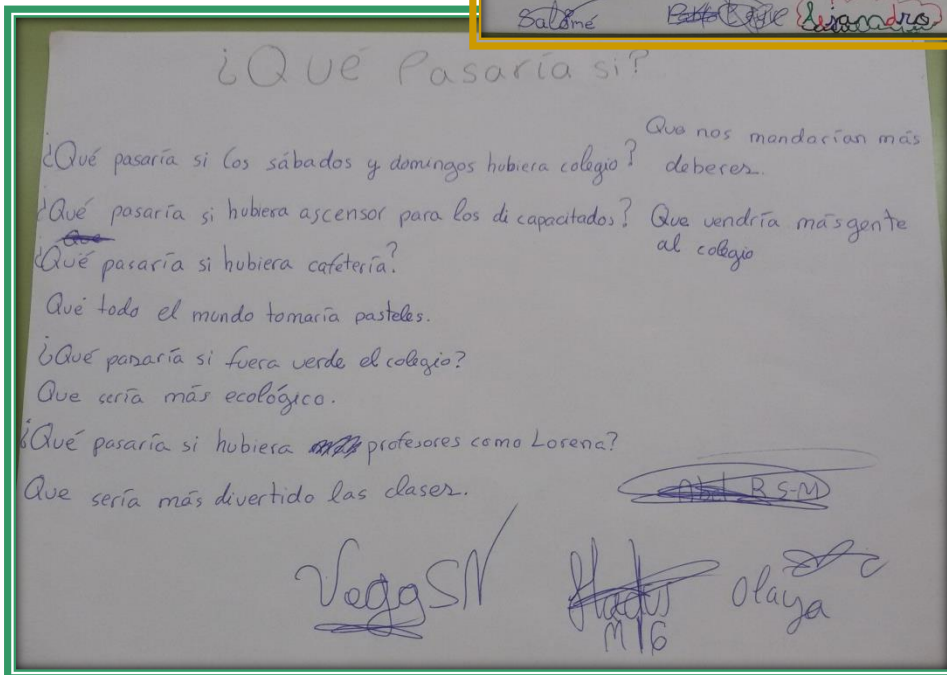 Salomé
¿Qué Pasaría si?
¿Qué pasaría si los sábados y domingos hubiera colegio? Que nos mandarían más
deberes.
¿Qué pasaría si hubiera ascensor para los dicapacitados? Que vendría más gente
al colegio
¿Qué pasaría si hubiera cafetería?
Que todo el mundo tomaría pasteles.
¿Qué pasaría si fuera verde el colegio?
Que sería más ecológico.
¿Qué pasaría si hubiera profesores como Lorena?
Que sería más divertido las clases.
R S-M
Vega SN
M G
Olaya